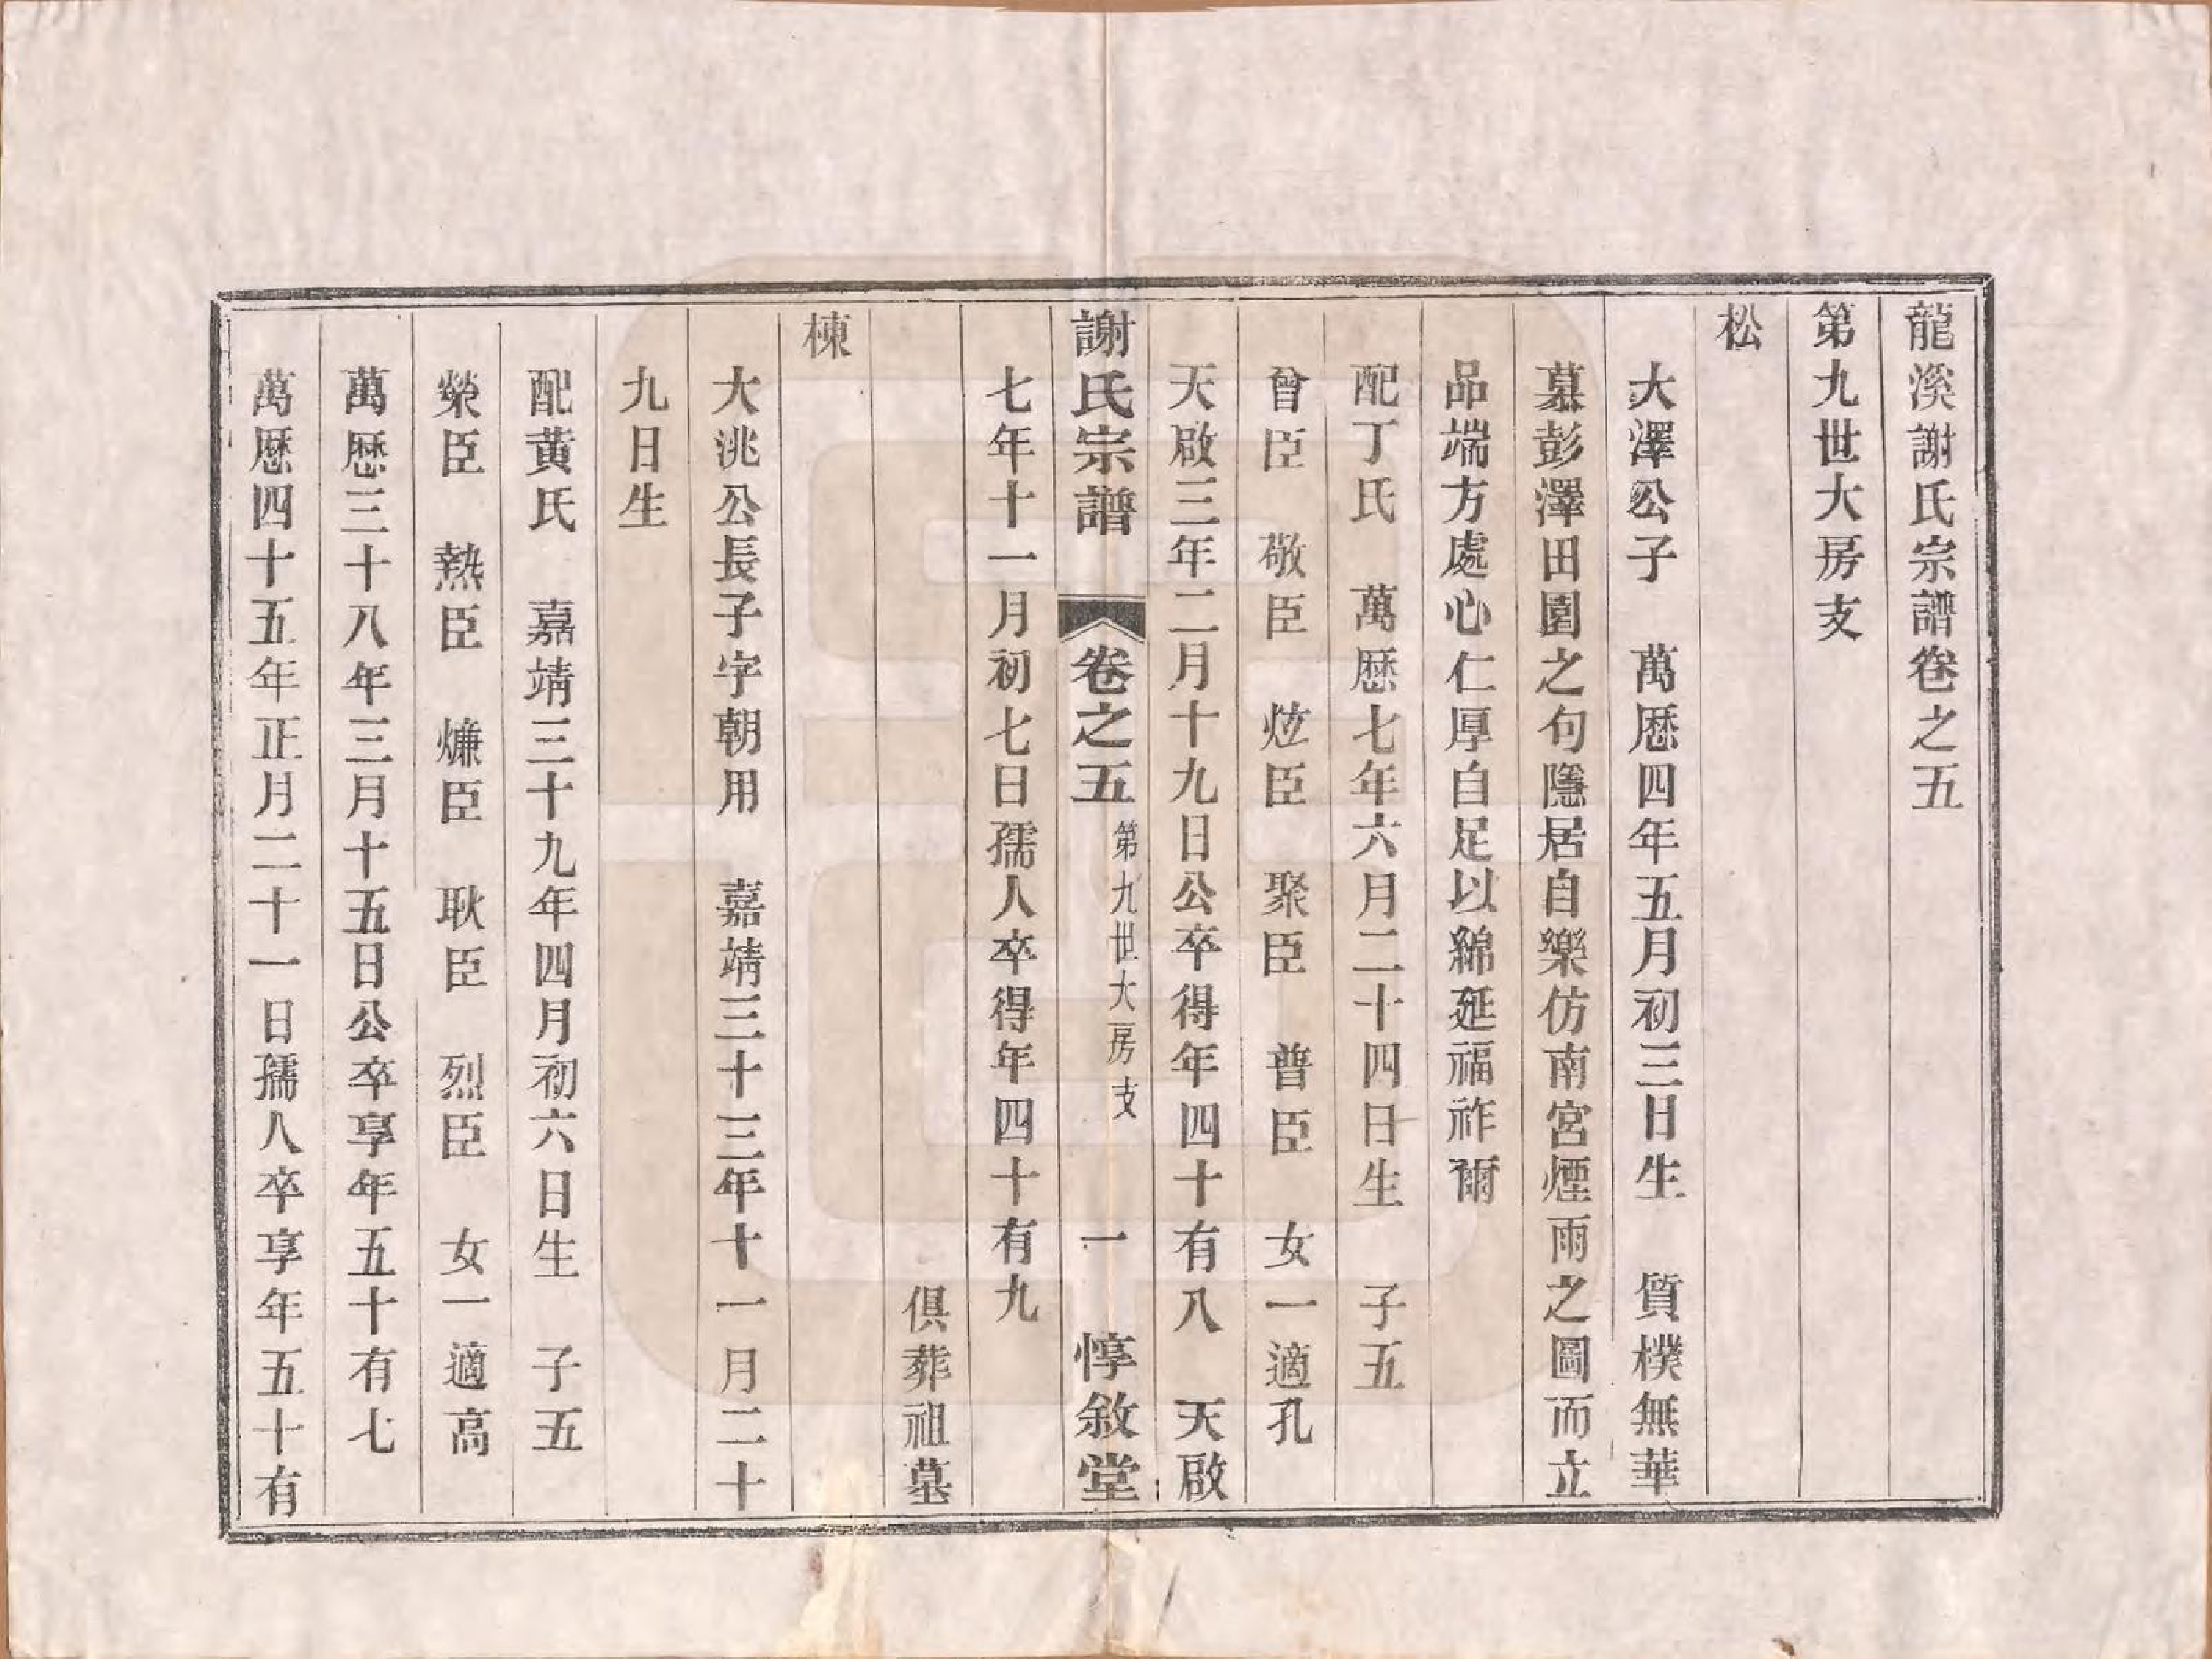 龍溪謝氏宗譜卷之五
第九世大房支
松
大澤公子　萬厯四年五月初三日生　質樸無華
慕彭澤田園之句隱居自樂仿南宮煙雨之圖而立
品端方處心仁厚自足以綿延福祚爾
配丁氏　萬厯七年六月二十四日生　子五
曾臣　敬臣　炫臣　聚臣　普臣　女一適孔
天啟三年二月十九日公卒得年四十有八　天啟
謝氏宗譜　卷之五　第九世大房支　一　惇敘堂
七年十一月初七日孺人卒得年四十有九
俱葬祖墓
棟
大洮公長子字朝用　嘉靖三十三年十一月二十
九日生
配黄氏　嘉靖三十九年四月初六日生　子五
榮臣　熱臣　熑臣　耿臣　烈臣　女一適高
萬厯三十八年三月十五日公卒享年五十有七
萬厯四十五年正月二十一日孺人卒享年五十有